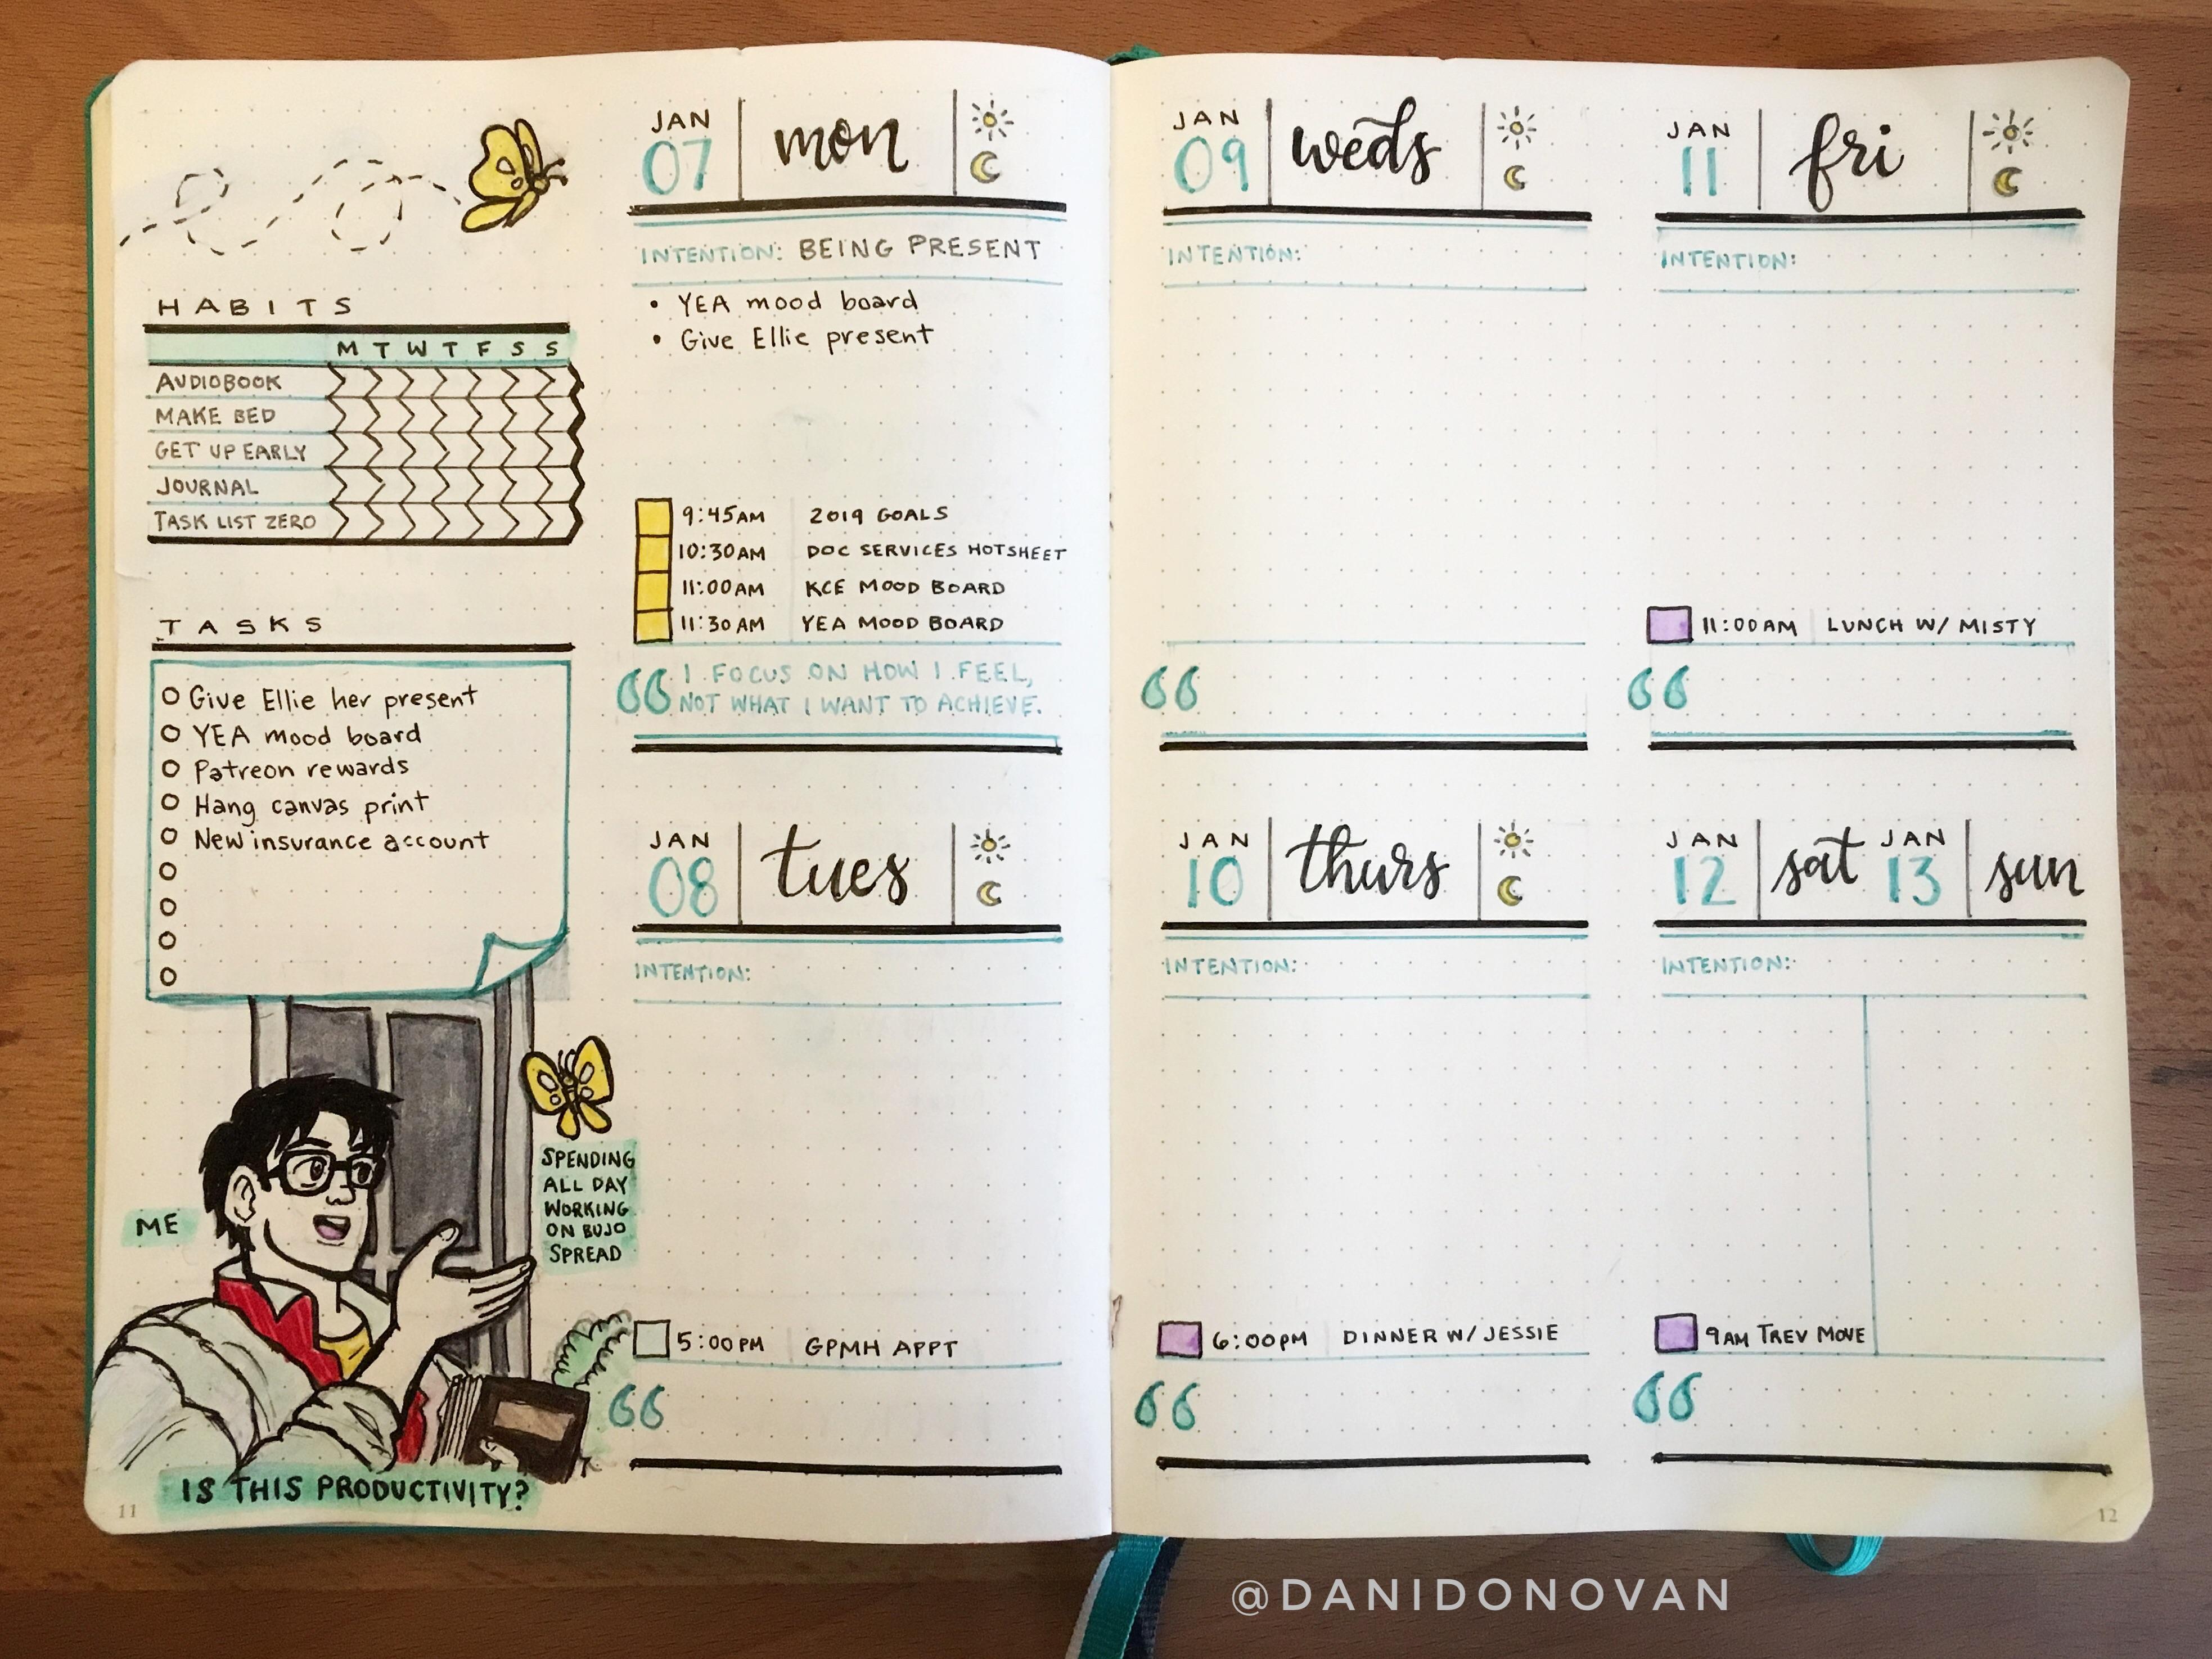 HABITS
M T W T F S S
AUDIOBOOK
MAKE BED
GET UP EARLY
JOURNAL
TASK LIST ZERO
TASKS
Give Ellie her present
YEA mood board
Patreon rewards
Hang canvas print
New insurance account
ME
SPENDING
ALL DAY
WORKING
ON BUJO
SPREAD
IS THIS PRODUCTIVITY?
11
JAN
07 mon
INTENTION: BEING PRESENT
• YEA mood board
• Give Ellie present
9:45AM 2019 GOALS
10:30AM DOC SERVICES HOTSHEET
11:00AM KCE MOOD BOARD
11:30AM YEA MOOD BOARD
“ I FOCUS ON HOW I FEEL,
NOT WHAT I WANT TO ACHIEVE.
JAN
08 tues
INTENTION:
5:00PM GPMH APPT
“
JAN
09 weds
INTENTION:
“
JAN
10 thurs
INTENTION:
6:00PM DINNER W/ JESSIE
“
JAN
11 fri
INTENTION:
11:00AM LUNCH W/ MISTY
“
JAN
12 sat
JAN
13 sun
INTENTION:
9AM TREV MOVE
“
12
@DANIDONOVAN